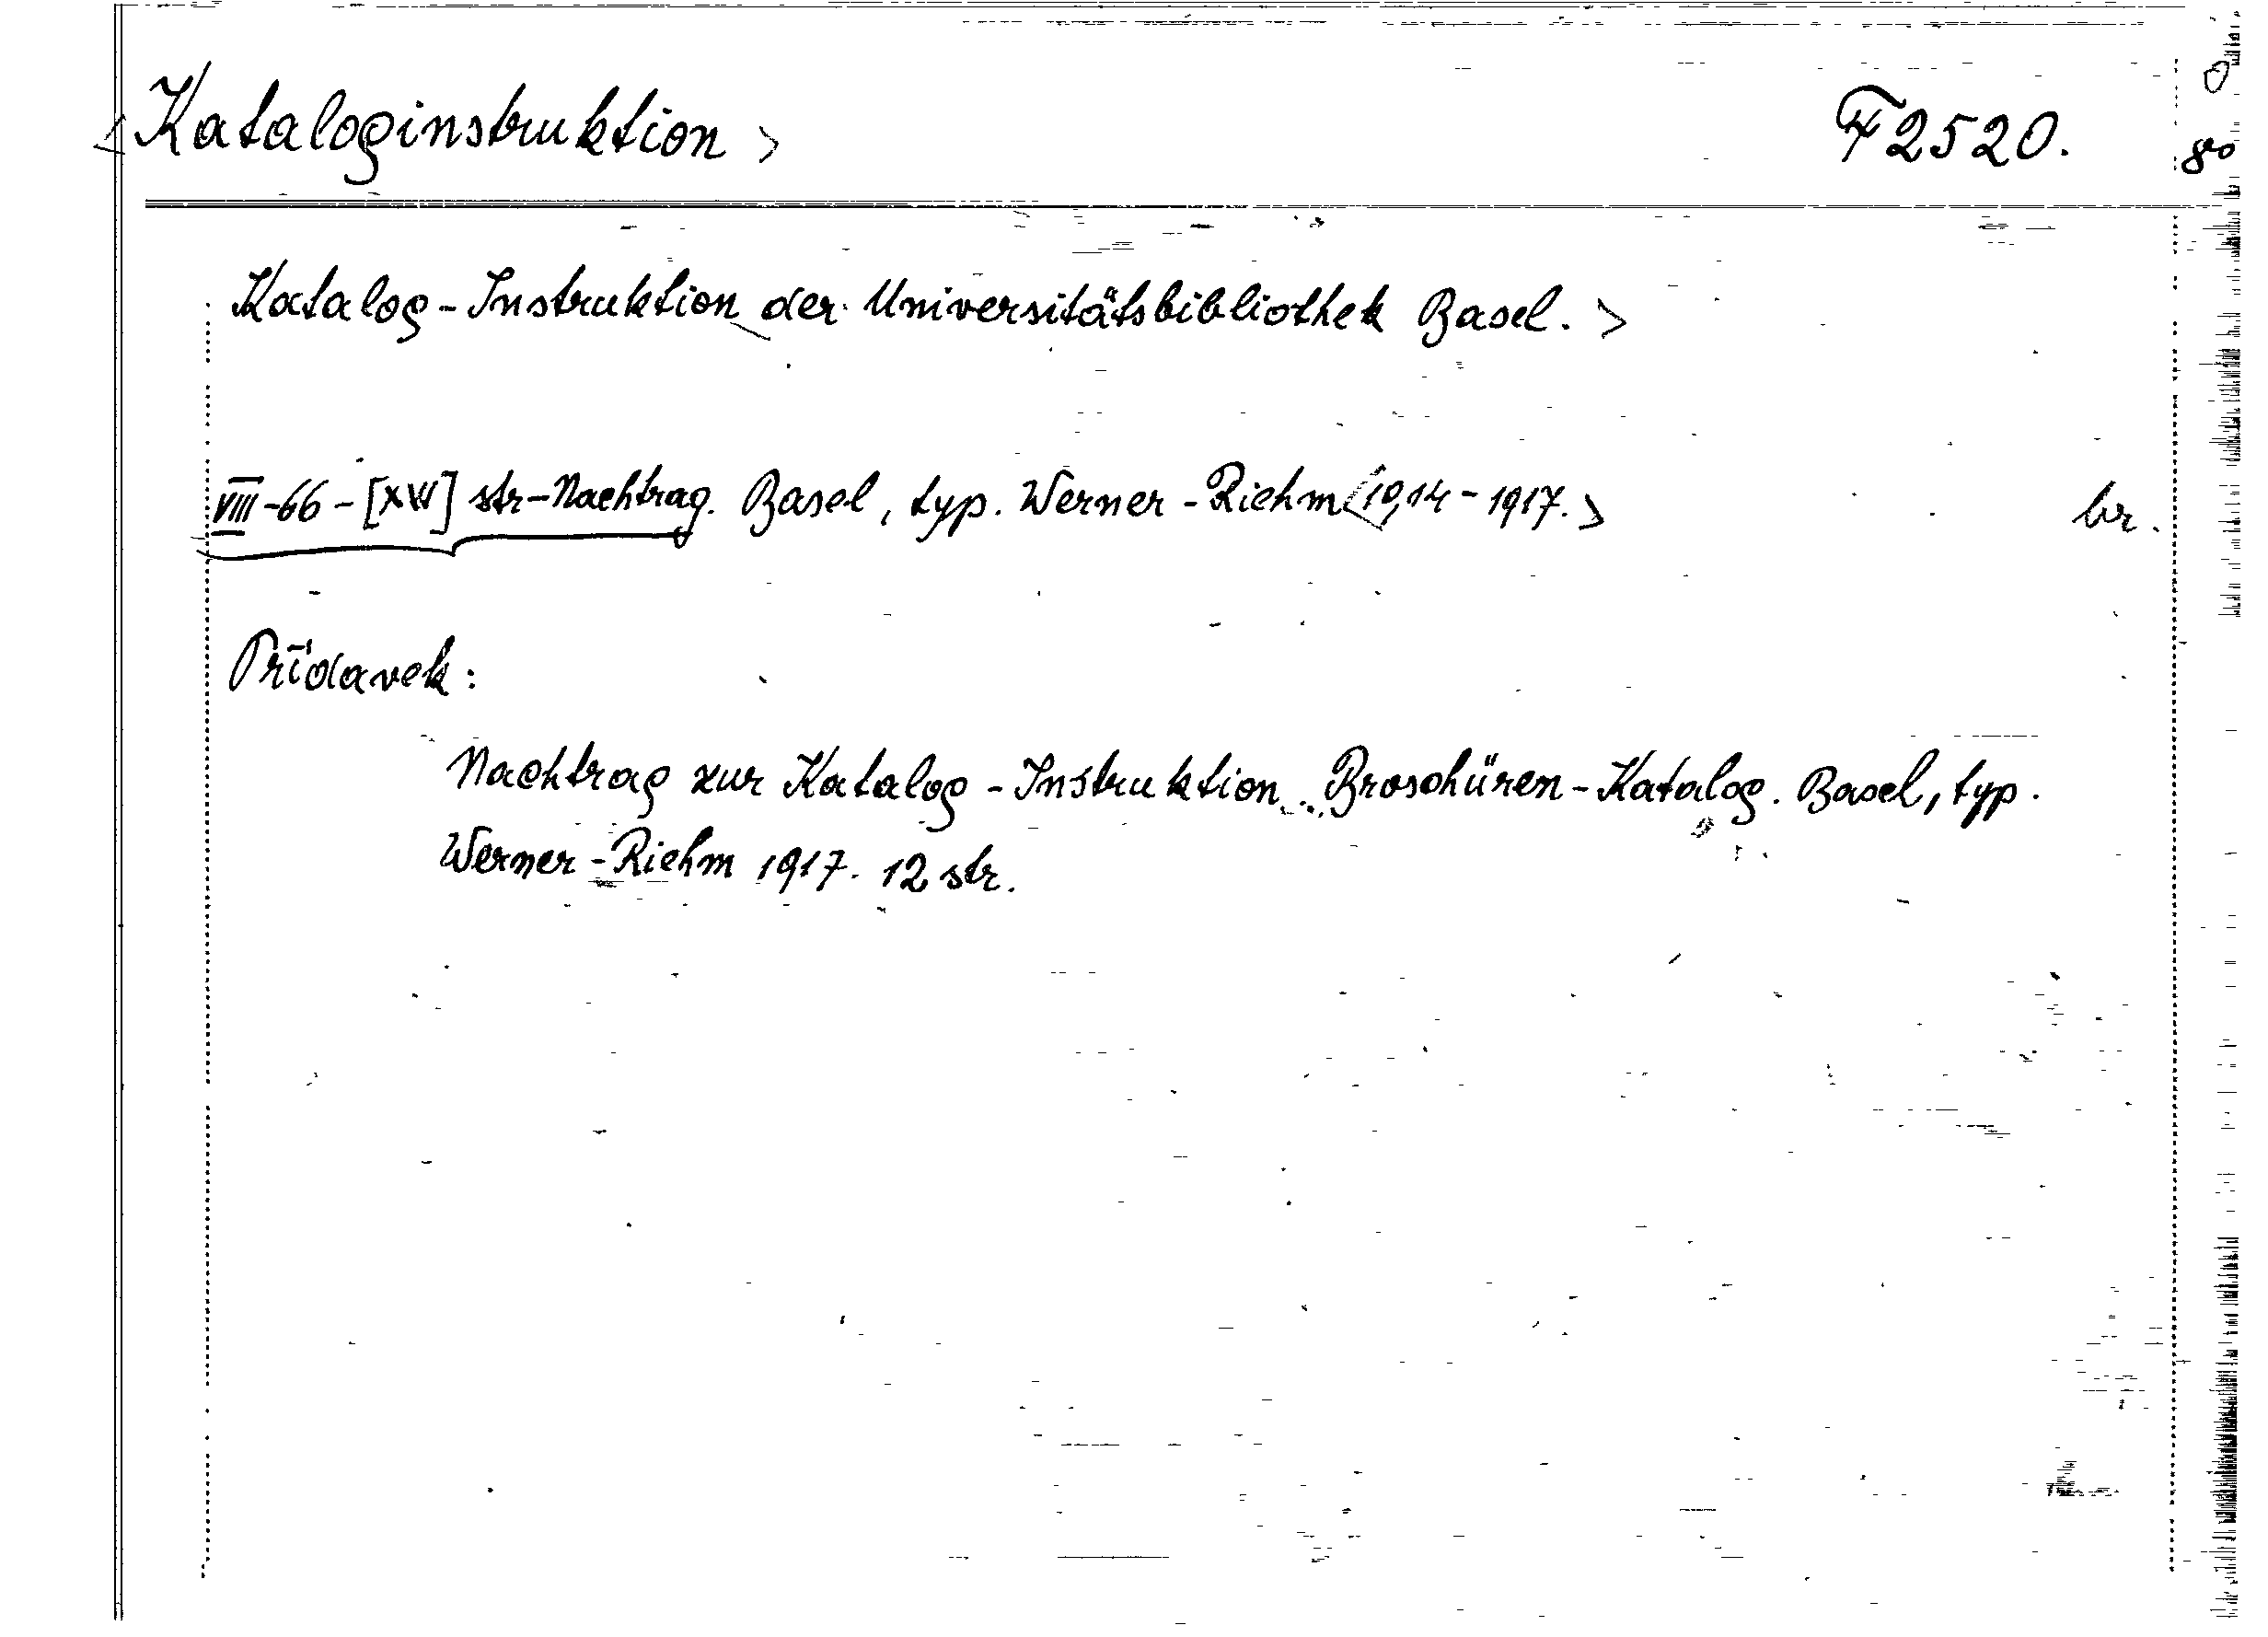 <Kataloginstruktion> F 2520. 8°
Katalog-Instruktion der Universitätsbibliothek Basel.>
VIII-66-[XVI] str-Nachtrag. Basel, typ. Werner-Riehm <1914-1917.> br.
Přídavek:
Nachtrag zur Katalog-Instruktion. Broschüren-Katalog. Basel, typ.
Werner-Riehm 1917. 12 str.